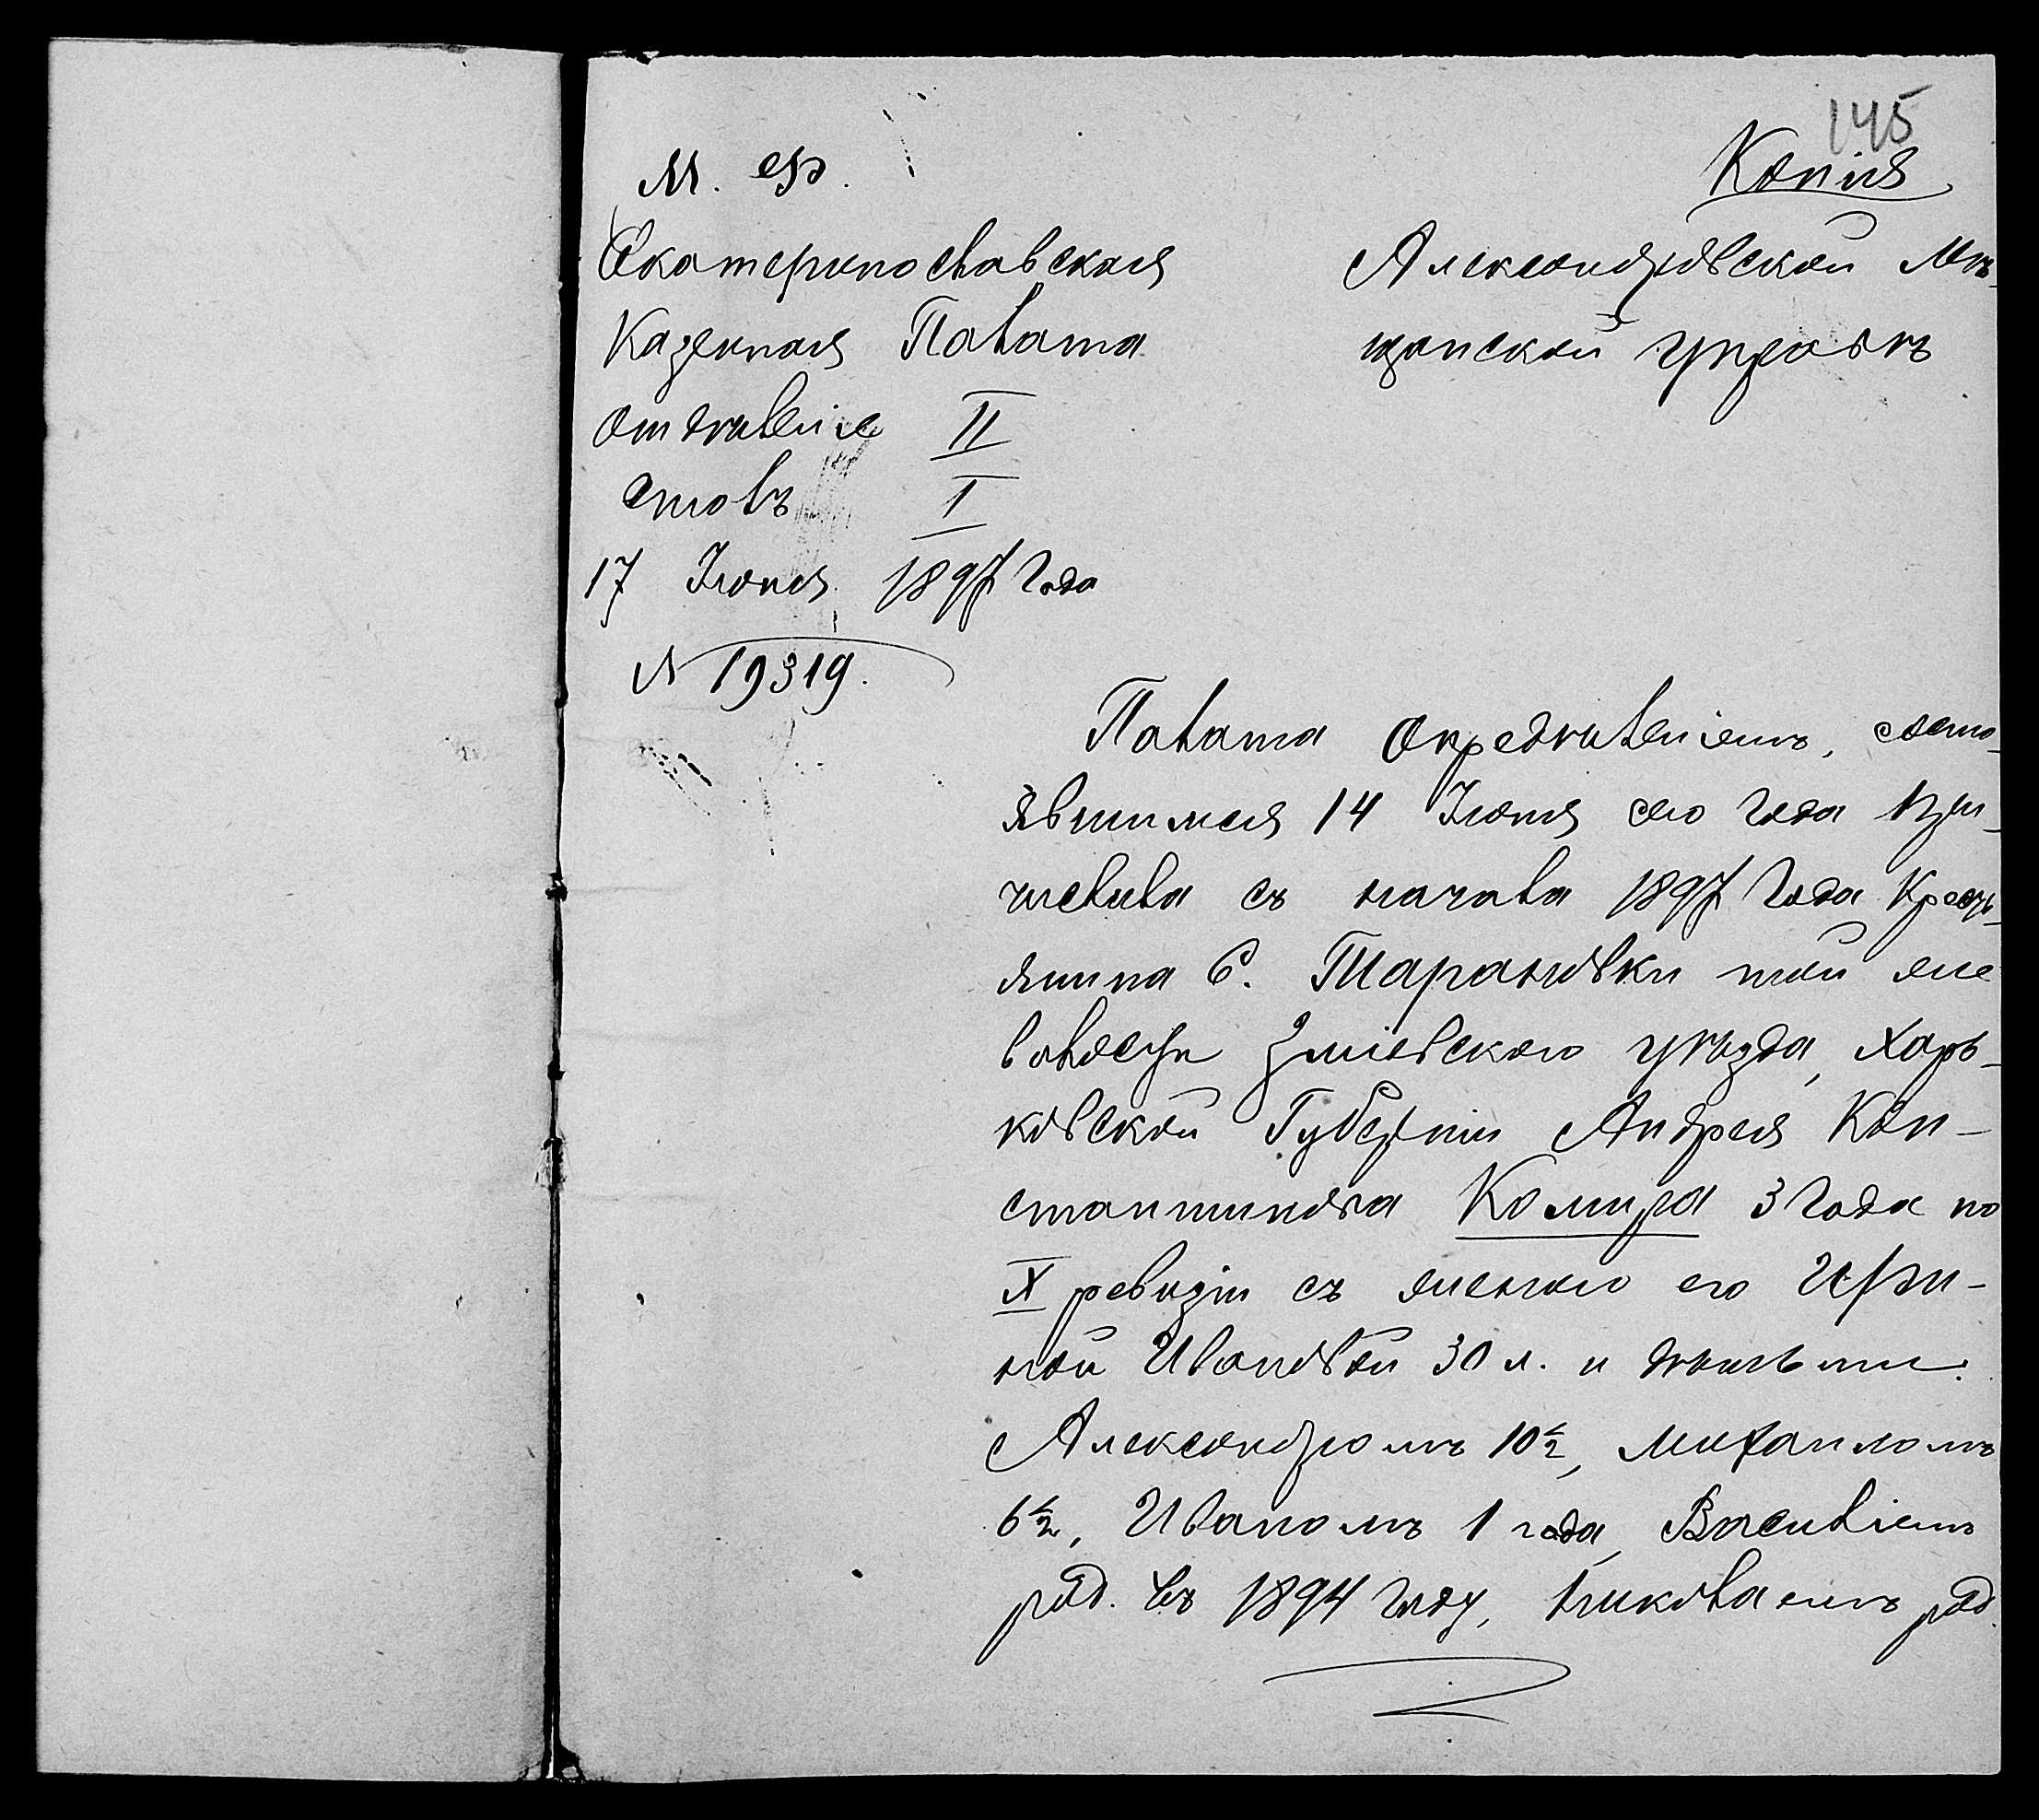 145
Копія
М. Ф.
Екатеринославская
Казенная Палата
Отдѣленіе II
Столъ I
17 Іюня 1897 Года
№ 19319.
Александровской Мѣ-
щанской Управѣ
Палата Опредѣленіемъ, состо-
явшимся 14 Іюня сего Года при-
числила съ начала 1897 Года Кресть-
янина С. Тарановки той же
волости Зміевскаго уѣзда, Харь-
ковской Губерніи Андрея Кон-
стантинова Комира 3 Года по
X ревизіи съ женою его Ири-
ной Ивановой 30 л. и дѣтьми:
Александромъ 10½, Михаиломъ
6½, Иваномъ 1 года, Василіемъ
род. въ 1894 Году, Николаемъ род.